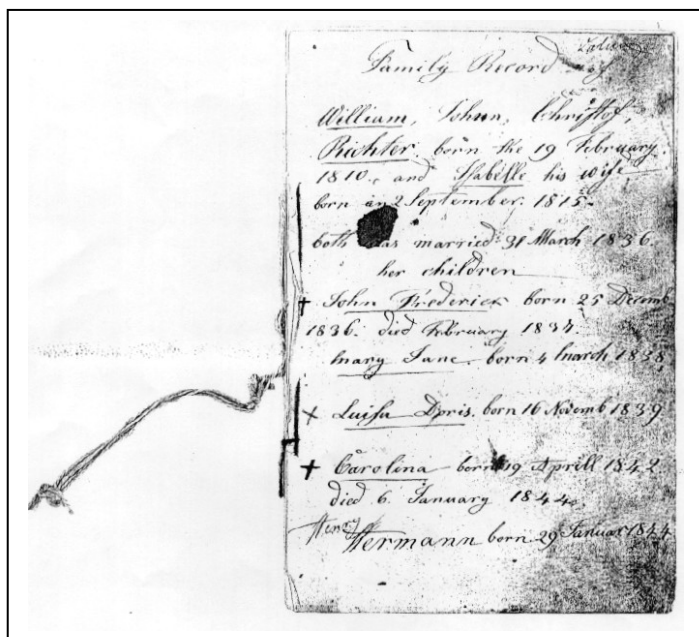 Family Record of
William, Johnn, Christof,
Richter. born the 19 February
1810. and Isabelle his wife
born an 2 September. 1815.
both was married 31 March 1836.
her children
John Frederick born 25 Decemb
1836. died February 1837.
Mary Jane born 4 March 1838
+ Luisa Doris. born 16 Novemb 1839
+ Carolina born 19 Aprill 1842
died 6. January 1844.
Henry
Hermann born 29 Januar 1844